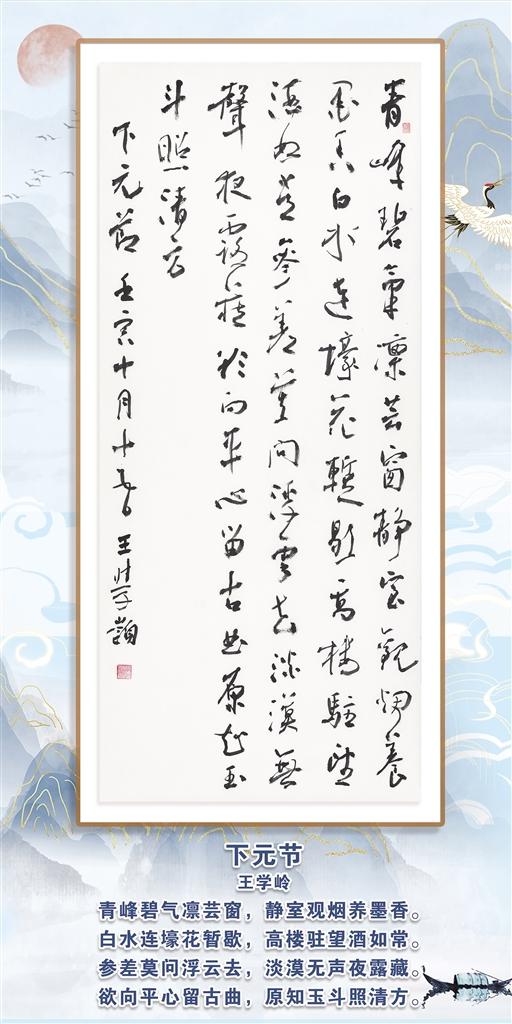 青峰碧氣凛芸窗静室觀烟養
墨香白水連壕花暫歇高樓駐望
酒如常參差莫问浮雲去淡漠無
聲夜露藏欲向平心留古曲原知玉
斗照清方
下元節 壬寅十月十五日 王学嶺
下元节
王学岭
青峰碧气凛芸窗，静室观烟养墨香。
白水连壕花暂歇，高楼驻望酒如常。
参差莫问浮云去，淡漠无声夜露藏。
欲向平心留古曲，原知玉斗照清方。